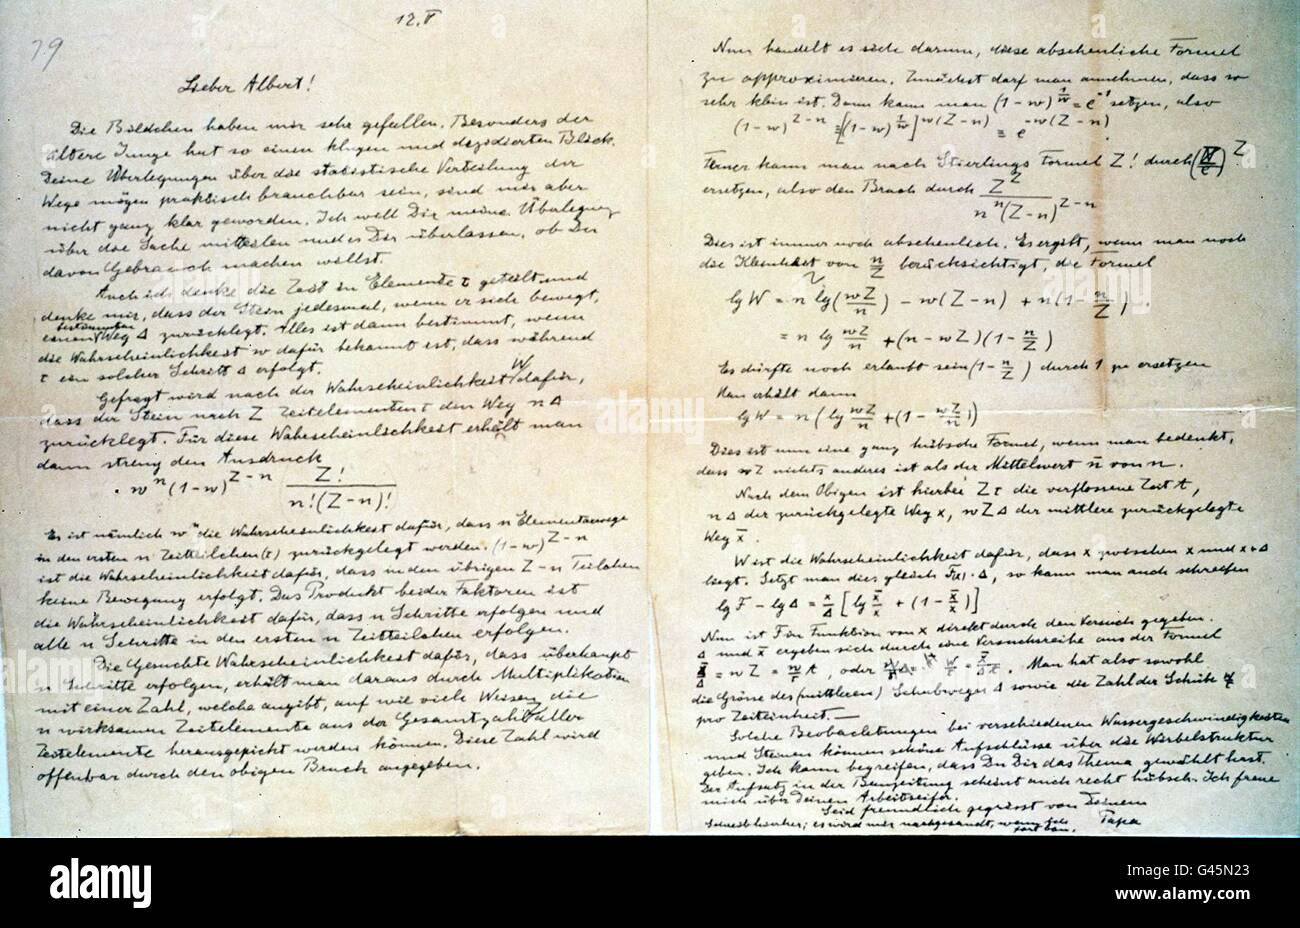 12.V
79
Lieber Albert!
Die Bildchen haben mir sehr gefallen. Besonders der
ältere Junge hat so einen klugen und dezidierten Blick.
Deine Überlegungen über die statistische Verteilung der
Wege mögen praktisch brauchbar sein, sind mir aber
nicht ganz klar geworden. Ich will Dir meine Überlegung
über die Sache mitteilen und es Dir überlassen, ob Du
davon Gebrauch machen willst.
Auch ich denke die Zeit in Elemente τ geteilt und
denke mir, dass der Stein jedesmal, wenn er sich bewegt,
einen bestimmten Weg Δ zurücklegt. Alles ist dann bestimmt, wenn
die Wahrscheinlichkeit w dafür bekannt ist, dass während
τ ein solcher Schritt Δ erfolgt.
Gefragt wird nach der Wahrscheinlichkeit W dafür,
dass der Stein nach Z Zeitelementen τ den Weg nΔ
zurücklegt. Für diese Wahrscheinlichkeit erhält man
dann streng den Ausdruck
w^n (1-w)^{Z-n} Z! / n!(Z-n)!
Es ist nämlich w^n die Wahrscheinlichkeit dafür, dass n Elementarwege
in den ersten n Zeitteilchen (τ) zurückgelegt werden. (1-w)^{Z-n}
ist die Wahrscheinlichkeit dafür, dass in den übrigen Z-n Teilchen
keine Bewegung erfolgt. Das Produkt beider Faktoren ist
die Wahrscheinlichkeit dafür, dass n Schritte erfolgen und
alle n Schritte in den ersten n Zeitteilchen erfolgen.
Die Gesuchte Wahrscheinlichkeit dafür, dass überhaupt
n Schritte erfolgen, erhält man daraus durch Multiplikation
mit einer Zahl, welche angibt, auf wie viele Weisen die
n wirksamen Zeitelemente aus der Gesamtzahl Z aller
Zeitelemente herausgepickt werden können. Diese Zahl wird
offenbar durch den obigen Bruch angegeben.
Nun handelt es sich darum, diese abscheuliche Formel
zu approximieren. Zunächst darf man annehmen, dass w
sehr klein ist. Dann kann man (1-w)^{1/w} = e^{-1} setzen, also
(1-w)^{Z-n} = [(1-w)^{1/w}]^{w(Z-n)} = e^{-w(Z-n)}
Ferner kann man nach Stierlings Formel Z! durch (Z/e)^Z
ersetzen, also den Bruch durch Z^Z / n^n (Z-n)^{Z-n}
Dies ist immer noch abscheulich. Es ergibt, wenn man noch
die Kleinheit von n/Z berücksichtigt, die Formel
lg W = n lg(wZ/n) - w(Z-n) + n(1 - n/Z).
= n lg wZ/n + (n-wZ)(1 - n/Z)
Es dürfte noch erlaubt sein (1 - n/Z) durch 1 zu ersetzen
Man erhält dann
lg W = n (lg wZ/n + (1 - wZ/n))
Dies ist nun eine ganz hübsche Formel, wenn man bedenkt,
dass wZ nichts anderes ist als der Mittelwert n̄ von n.
Nach dem Obigen ist hierbei Zτ die verflossene Zeit t,
nΔ der zurückgelegte Weg x, wZΔ der mittlere zurückgelegte
Weg x̄.
W ist die Wahrscheinlichkeit dafür, dass x zwischen x und x+Δ
liegt. Setzt man dies gleich F(x)·Δ, so kann man auch schreiben
lg F - lg Δ = x/Δ [lg x̄/x + (1 - x̄/x)]
Nun ist F in Funktion von x direkt durch den Versuch gegeben.
Δ und x̄ ergeben sich durch eine Versuchsreihe aus der Formel
x̄/Δ = wZ = w/τ t, oder . Man hat also sowohl
die Grösse des (mittleren) Schubweges Δ sowie die Zahl der Schübe w/τ
pro Zeiteinheit. —
Solche Beobachtungen bei verschiedenen Wassergeschwindigkeiten
und Steinen können schöne Aufschlüsse über die Wirbelstruktur
geben. Ich kann begreifen, dass Du Dir das Thema gewählt hast.
Der Aufsatz in der Bauzeitung scheint auch recht hübsch. Ich freue
mich über Deinen Arbeitseifer.
Seid freundlich gegrüsst von Deinem
Papa
es wird mir nachgesandt, wenn ich
fort bin.
alamy
alamy
G45N23
www.alamy.com